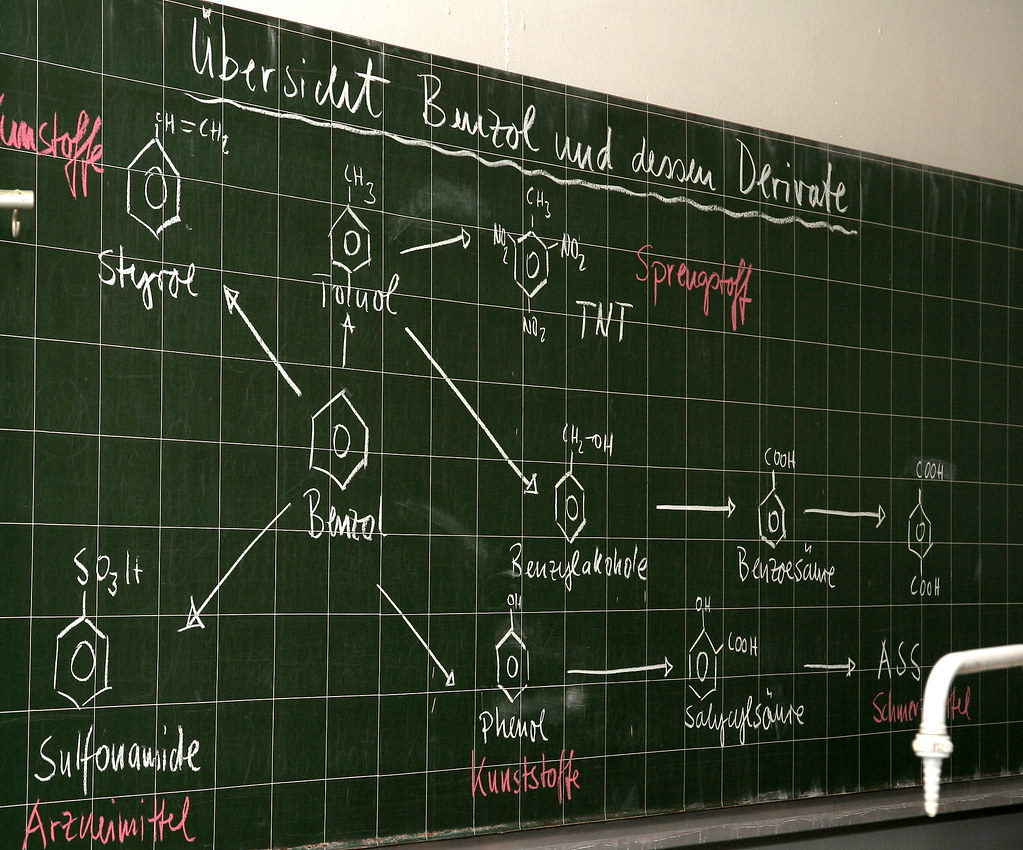 Übersicht Benzol und dessen Derivate
CH=CH2
Styrol
CH3
Toluol
CH3
NO2
NO2
NO2
TNT
Sprengstoff
Benzol
CH2-OH
Benzylakohole
COOH
Benzoesäure
COOH
COOH
SO3H
Sulfonamide
Arzneimittel
OH
Phenol
Kunststoffe
OH
COOH
Salycylsäure
ASS